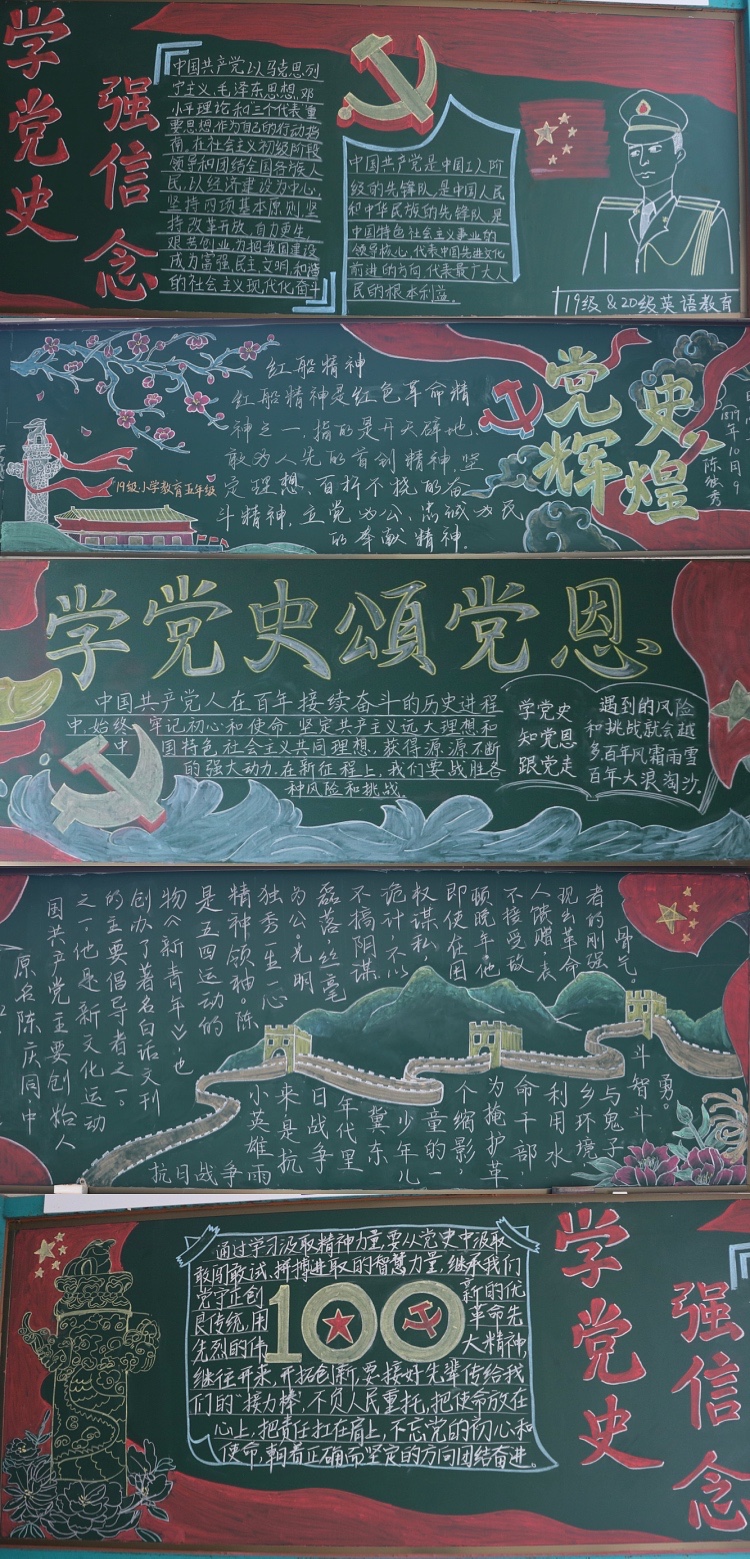 学党史
强信念
中国共产党以马克思列
宁主义、毛泽东思想、邓
小平理论和“三个代表”重
要思想,作为自己的行动指
南,在社会主义初级阶段
领导和团结全国各族人
民,以经济建设为中心,
坚持四项基本原则,坚
持改革开放,自力更生,
艰苦创业,为把我国建设
成为富强,民主,文明,和谐
的社会主义现代化奋斗
中国共产党是中国工人阶
级的先锋队,是中国人民
和中华民族的先锋队,是
中国特色社会主义事业的
领导核心,代表中国先进文化
前进的方向,代表最广大人
民的根本利益.
19级&20级英语教育
红船精神
红船精神是红色革命精
神之一,指的是开天辟地,
敢为人先的首创精神,坚
定理想、百折不挠的奋
斗精神,立党为公、忠诚为民
的奉献精神.
19级小学教育五年级
党史
辉煌
1879年10月9
陈独秀
学党史頌党恩
中国共产党人在百年接续奋斗的历史进程
中,始终牢记初心和使命.坚定共产主义远大理想和
中国特色社会主义共同理想,获得源源不断
的强大动力.在新征程上,我们要战胜各
种风险和挑战.
学党史
知党恩
跟党走
遇到的风险
和挑战就会越
多.百年风霜雨雪
百年大浪淘沙.
者的刚强骨气。
现出革命
人馈赠,表
不接受敌
顿晚年,他
即使在困
权谋私,
诡计,不以
不搞阴谋
磊落,丝毫
为公,光明
独秀一生一心
精神领袖。陈
是五四运动的
物《新青年》,也
创办了著名白话文刊
的主要倡导者之一。
之一,他是新文化运动
国共产党主要创始人
原名陈庆同中
勇。
斗智斗
与鬼子
乡环境
利用水
命干部
为掩护革
个缩影
童的一
少年儿
冀东
年代里
日战争
来是抗
小英雄雨
抗日战争
通过学习汲取精神力量,要从党史中汲取
敢闯敢试、拼搏进取的智慧力量,继承我们
党守正创新的优
良传统,用革命先
先烈的伟大精神,
100
继往开来,开拓创新,要接好先辈传给我
们的“接力棒”,不负人民重托,把使命放在
心上,把责任扛在肩上,不忘党的初心和
使命,朝着正确而坚定的方向团结奋进。
学党史
强信念